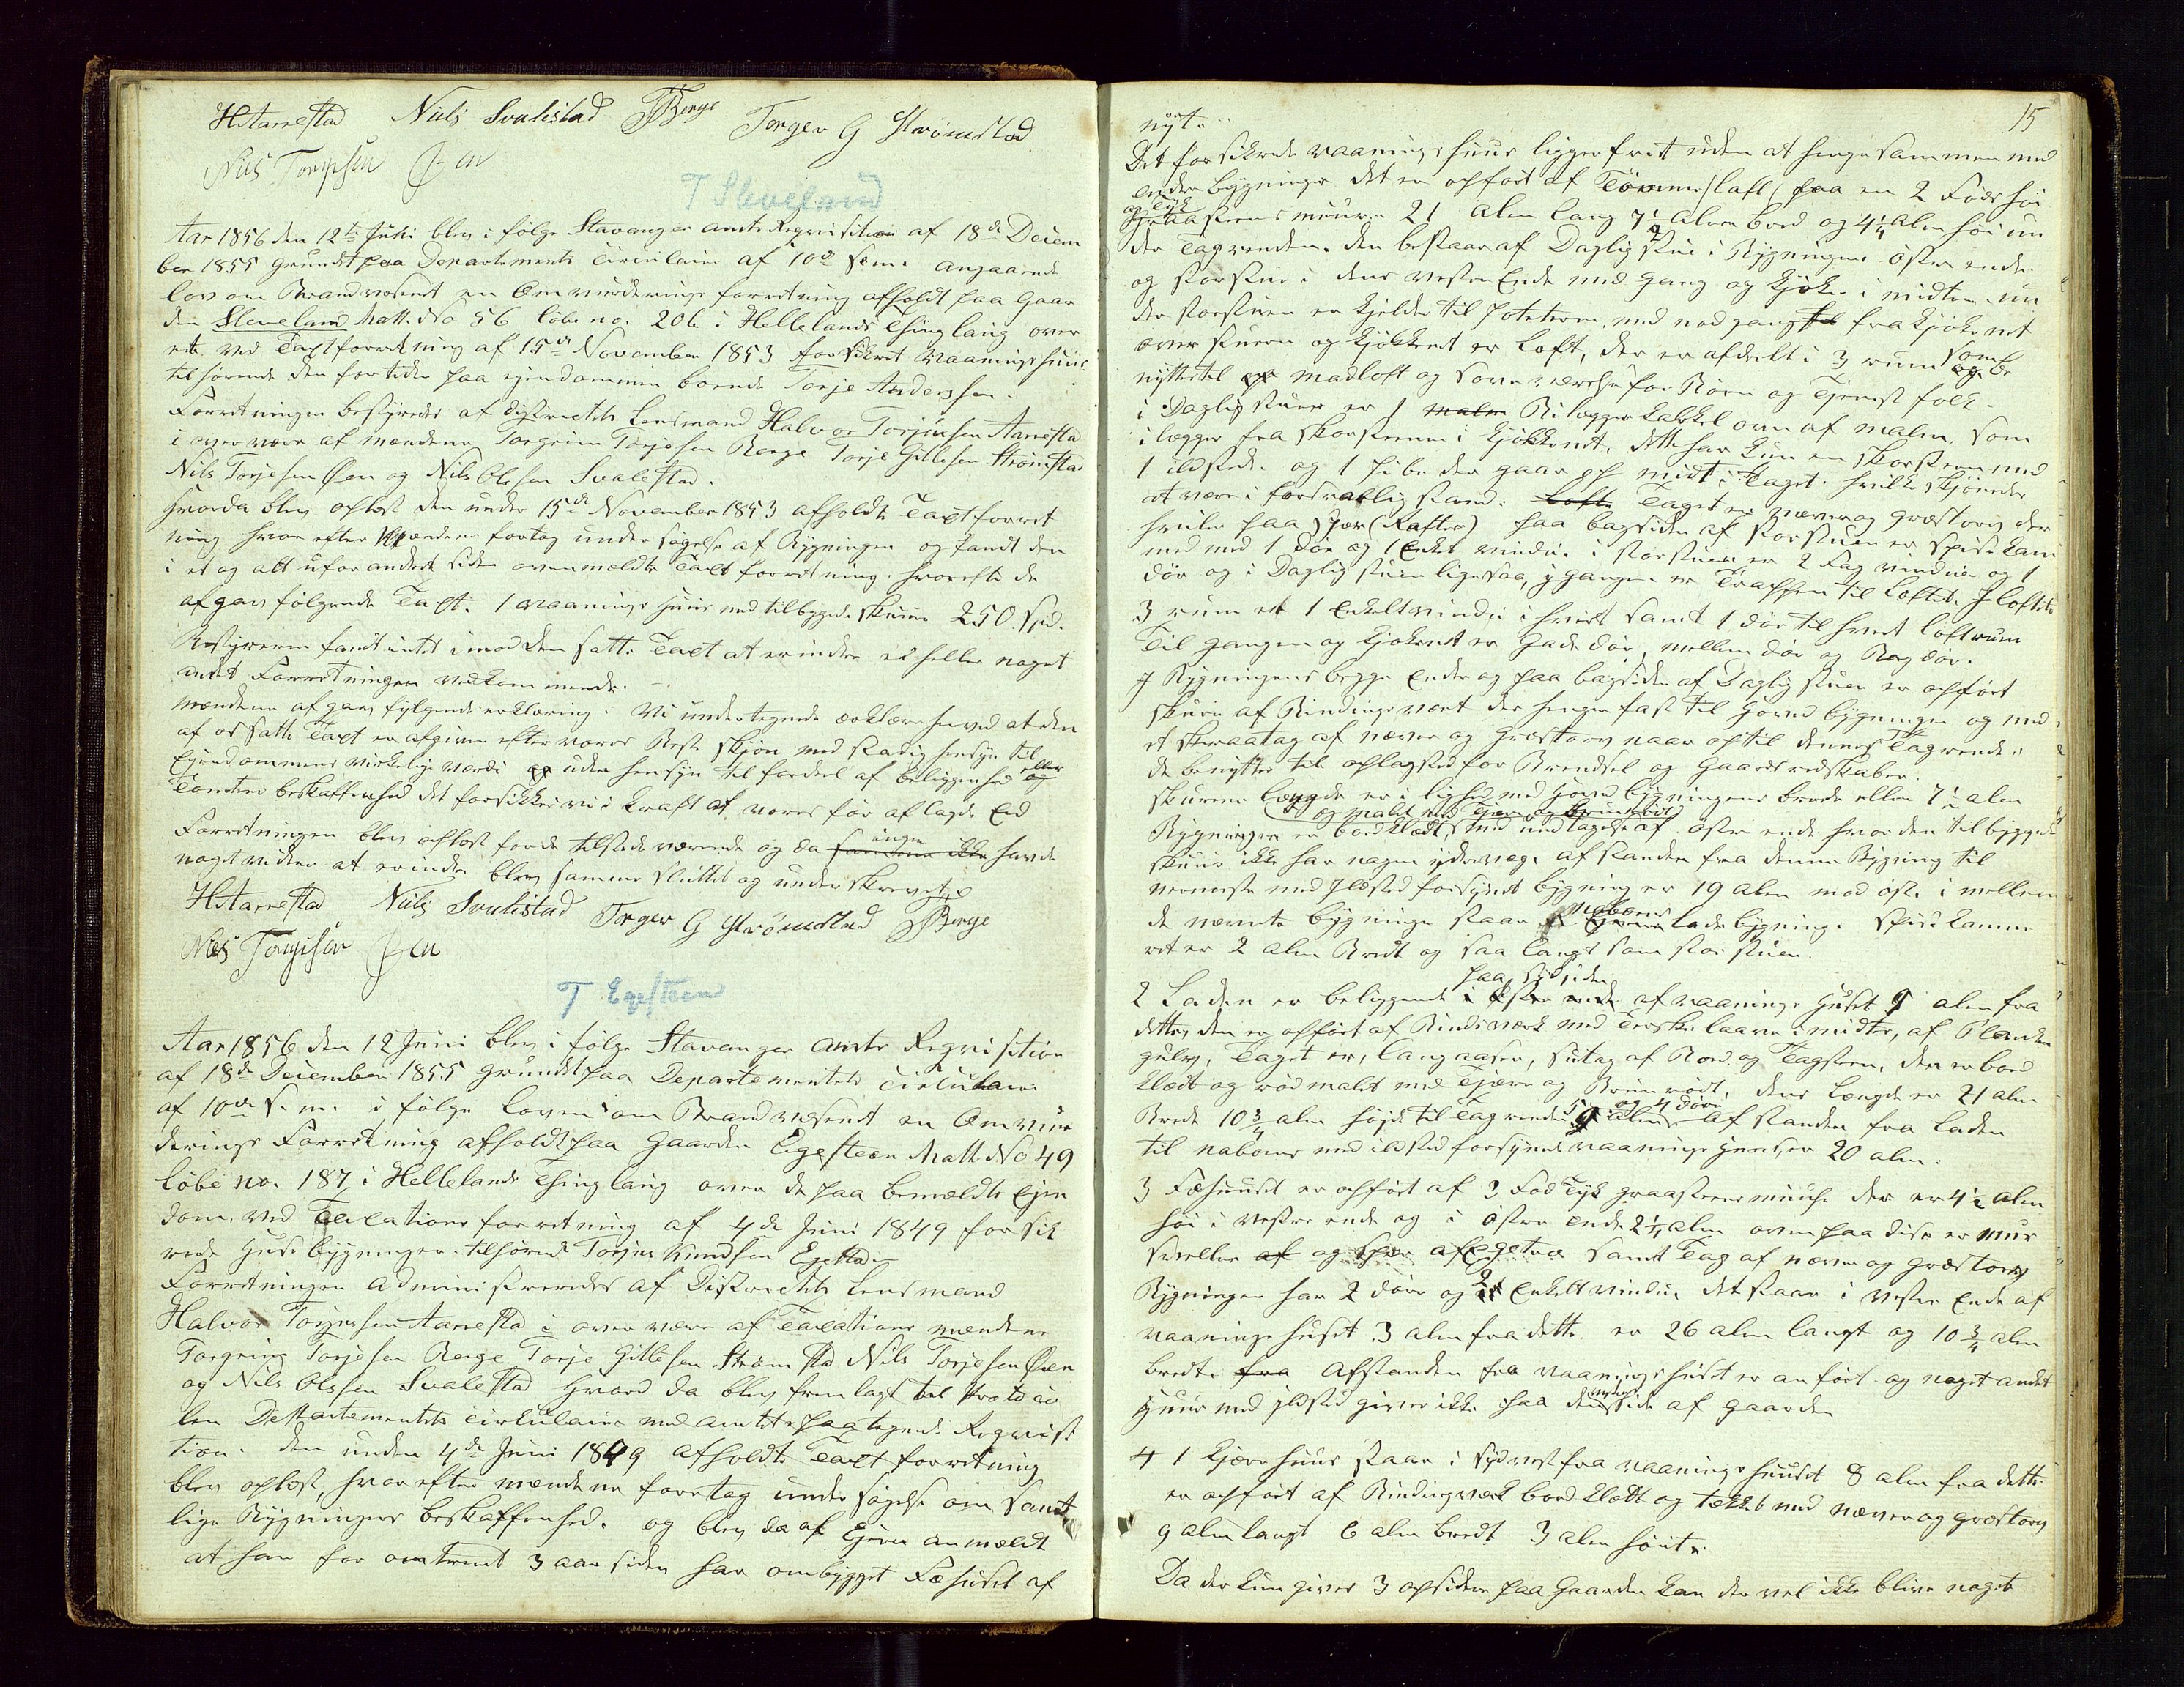 HAarrestad Niels Svalestad TBerge Torger G Strømstad
Niels Torgesen Øen
T Sleveland
Aar 1856 den 12te Juni blev i følge Stavanger Amts Reqvisition af 18de Decem
ber 1855 grundet paa Departements Circulaire af 10de s.m. angaaende
lov om Brandvæsenet en Omvurderings forretning afholdt paa Gaar
den Sleveland Matt. No 56 løbe no. 206 i Hellelands Thinglaug over
et ved Taxtforretning af 15de November 1853 forsikret Vaaningshuus
tilhørende den for tiden paa ejendommen boende Torje Anderssen.
Forretningen bestyredes af districtets Lensmand Halvor Torjussen Aarrestad
i overvær af mændene Torgrim Torjesen Berge Torje Gittlesen Strømstad
Nils Torjesen Øen og Nils Olssen Svalestad.
Hvorda blev oplæst den under 15de November 1853 afholdte Taxtforret
ning hvor efter Mændene foretog undersøgelse af Bygningen og fandt den
i et og alt uforandret siden ovenmeldte Taxtforretning. Hvorefter de
afgav følgende Taxt. 1 Vaanings Huus med tilbygede skure 250 Spd.
Bestyreren fandt intet imod den satte Taxt at erindre ei heller noget
andet Forretningen vedkommende.
Mændene afgav følgende erklæring: Vi undertegnede erklære herved at den
af os satte Taxt er afgiven efter vores Beste skjøn med stadig hensyn til
Ejendommens virkelige værdi og uden hensyn til fordel af beliggenhed eller
Tomtens beskaffenhed det forsikkres vi i kraft af vores før aflagde Eed
Forretningen blev oplæst for de tilstedeværende og da ingen havde
noget videre at erindre blev samme sluttet og underskrevet.
HAarrestad Niels Svalestad Torger G Strømstad TBerge
Niels Torgisen Øen
T Egesteen
Aar 1856 den 12 Juni blev i følge Stavanger Amts Reqvisition
af 18de December 1855 grundet paa Departementets Cirkulaire
af 10de s.m. i følge loven om Brandvæsenet en Omvur
derings Forretning afholdt paa Gaarden Egesteen Matt. No 49
Løbe no. 187 i Hellelands Thinglaug over de paa bemældte Ejen
dom, ved Taxations forretning af 4de Juni 1849 forsik
rede Huse bygninger tilhørende Torjus
Forretningen administreredes af Districtets Lensmand
Halvor Torjussen Aarrestad i overvær af Taxations mændene
Torgrim Torjesen Berge Torje Gittlesen Strømstad Nils Torjesen Øen
og Nils Olssen Svalestad Hvord da blev fremlagt til Protocol
len Departementets Cirkulaire med Amtets paategnede Reqvisi
tion. den under 4de Juni 1849 afholdte Taxt forretning
blev oplæst, hvor efter mændene foretog undersøgelse om samt
lige Bygningers beskaffenhed. og blev da af Ejeren anmeldt
at han for omtrent 3 aar siden har ombygget Fæhuset af
15
nyt.
Det forsikrede vaaningshuus ligger frit uden at henge sammen med
andre bygninger det er opført af Tømmer/laft/ paa en 2 Fods høi
og tyk
Graasteensmuur 21 alen lang 7½ alen bred og 4¼ alen høi un
der Tagrenden. den bestaar af Daglig stue i Bygningens østre ende
og storstue i dens vestre Ende med Gang og kjøken i midten. un
der storstuen er kjelder til poteter, med nedgang fra kjøkenet
over stuerne og kjøkkenet er Loft, der er afdelt i 3 rum som be
nyttes til Madloft og soveværelse for Børn og Tjenest folk.
i Daglig stuen er 1 Bilægger kakkel ovn af malm, som
ilægges fra skorstenen i kjøkkenet, dette har kun en skorsteen med
1 ildsted og 1 pibe der gaar op midt i Taget. hvilke skjønnedes
at være i forsvarlig stand. Taget er næver og græstorv der
hviler paa sper (Rafter) paa bagsiden af storstuen er spisekam
mer med 1 dør og 1 Enkel vindue i storstuen er 2 Fag vinduer og 1
dør og i Daglig stuen ligesaa, i gangen er Trappen til Loftet. I Loftets
3 rum er 1 Enkelt vindue i hvert samt 1 dør til hvert loftrum
Til gangen og kjøkenet er Gadedør, mellem dør og Bagdør.
I Bygningens begge Ender og paa bagsiden af Daglig stuen er opført
skure af Bindingsverk der henger fast til Hoved bygningen og med
et skraatag af næver og Græstorv naar op til dennes Tagrende
de benyttes til oplagsted for Brendsel og Gaards redskaber.
skurenes Længde er i lighed med Hoved bygningens brede eller 7½ alen
og malet med Tjære og Bruunrødt
Bygningen er bordklædt, med undtagelse af østre ende hvor den tilbyggede
skuur ikke har nogen ydervæg. afstanden fra denne Bygning til
nermeste med Ildsted forsynet bygning er 19 alen mod øst. i mellem
de nævnte bygninger staar Naboens Ladebygning. Spisekamme
ret er 2 alen Bredt og saa langt som stor stuen.
paa sydsiden
2 Laden er beliggende af vaanings Huset 9 alen fra
dette, den er opført af Bindeværk med Terskelaave i midten, af Planke
gulv, Taget er, langaaser, sutag af Bord og Tagsteen, den er bord
klædt og rødmalet med Tjære og Bruunrødt, dens Længde er 21 alen
Brede 10¾ alen høide til Tagrenden 5 alen og 4 døre. Afstanden fra Laden
til naboens med ildsted forsynede vaanings Huus, er 20 alen.
3 Fæhuuset er opført af 2 Fod tyk graasteensmuur der er 4½ alen
høi i vestre ende og i østre ende 2¼ alen oven paa disse er muur
sveller og sper af Egetræ samt Tag af næver og græstorv
Bygningen har 2 døre og 2 Enkelt vinduer det staar i vestre Ende af
vaaningshuset 3 alen fra dette er 26 alen langt og 10¾ alen
bredt. Afstanden fra vaaningshuset er anført og noget andet
Huus med ildsted gives ikke paa denne side af gaarden
4 1 Kjørehuus staar i sydvest fra vaaningshuuset 8 alen fra dette
er opført af Bindingværk bordklædt og tækket med næver og græstorv
9 alen langt 6 alen bredt 3 alen høit.
Da der kun gives 3 opsidere paa Gaarden kan der vel ikke blive noget